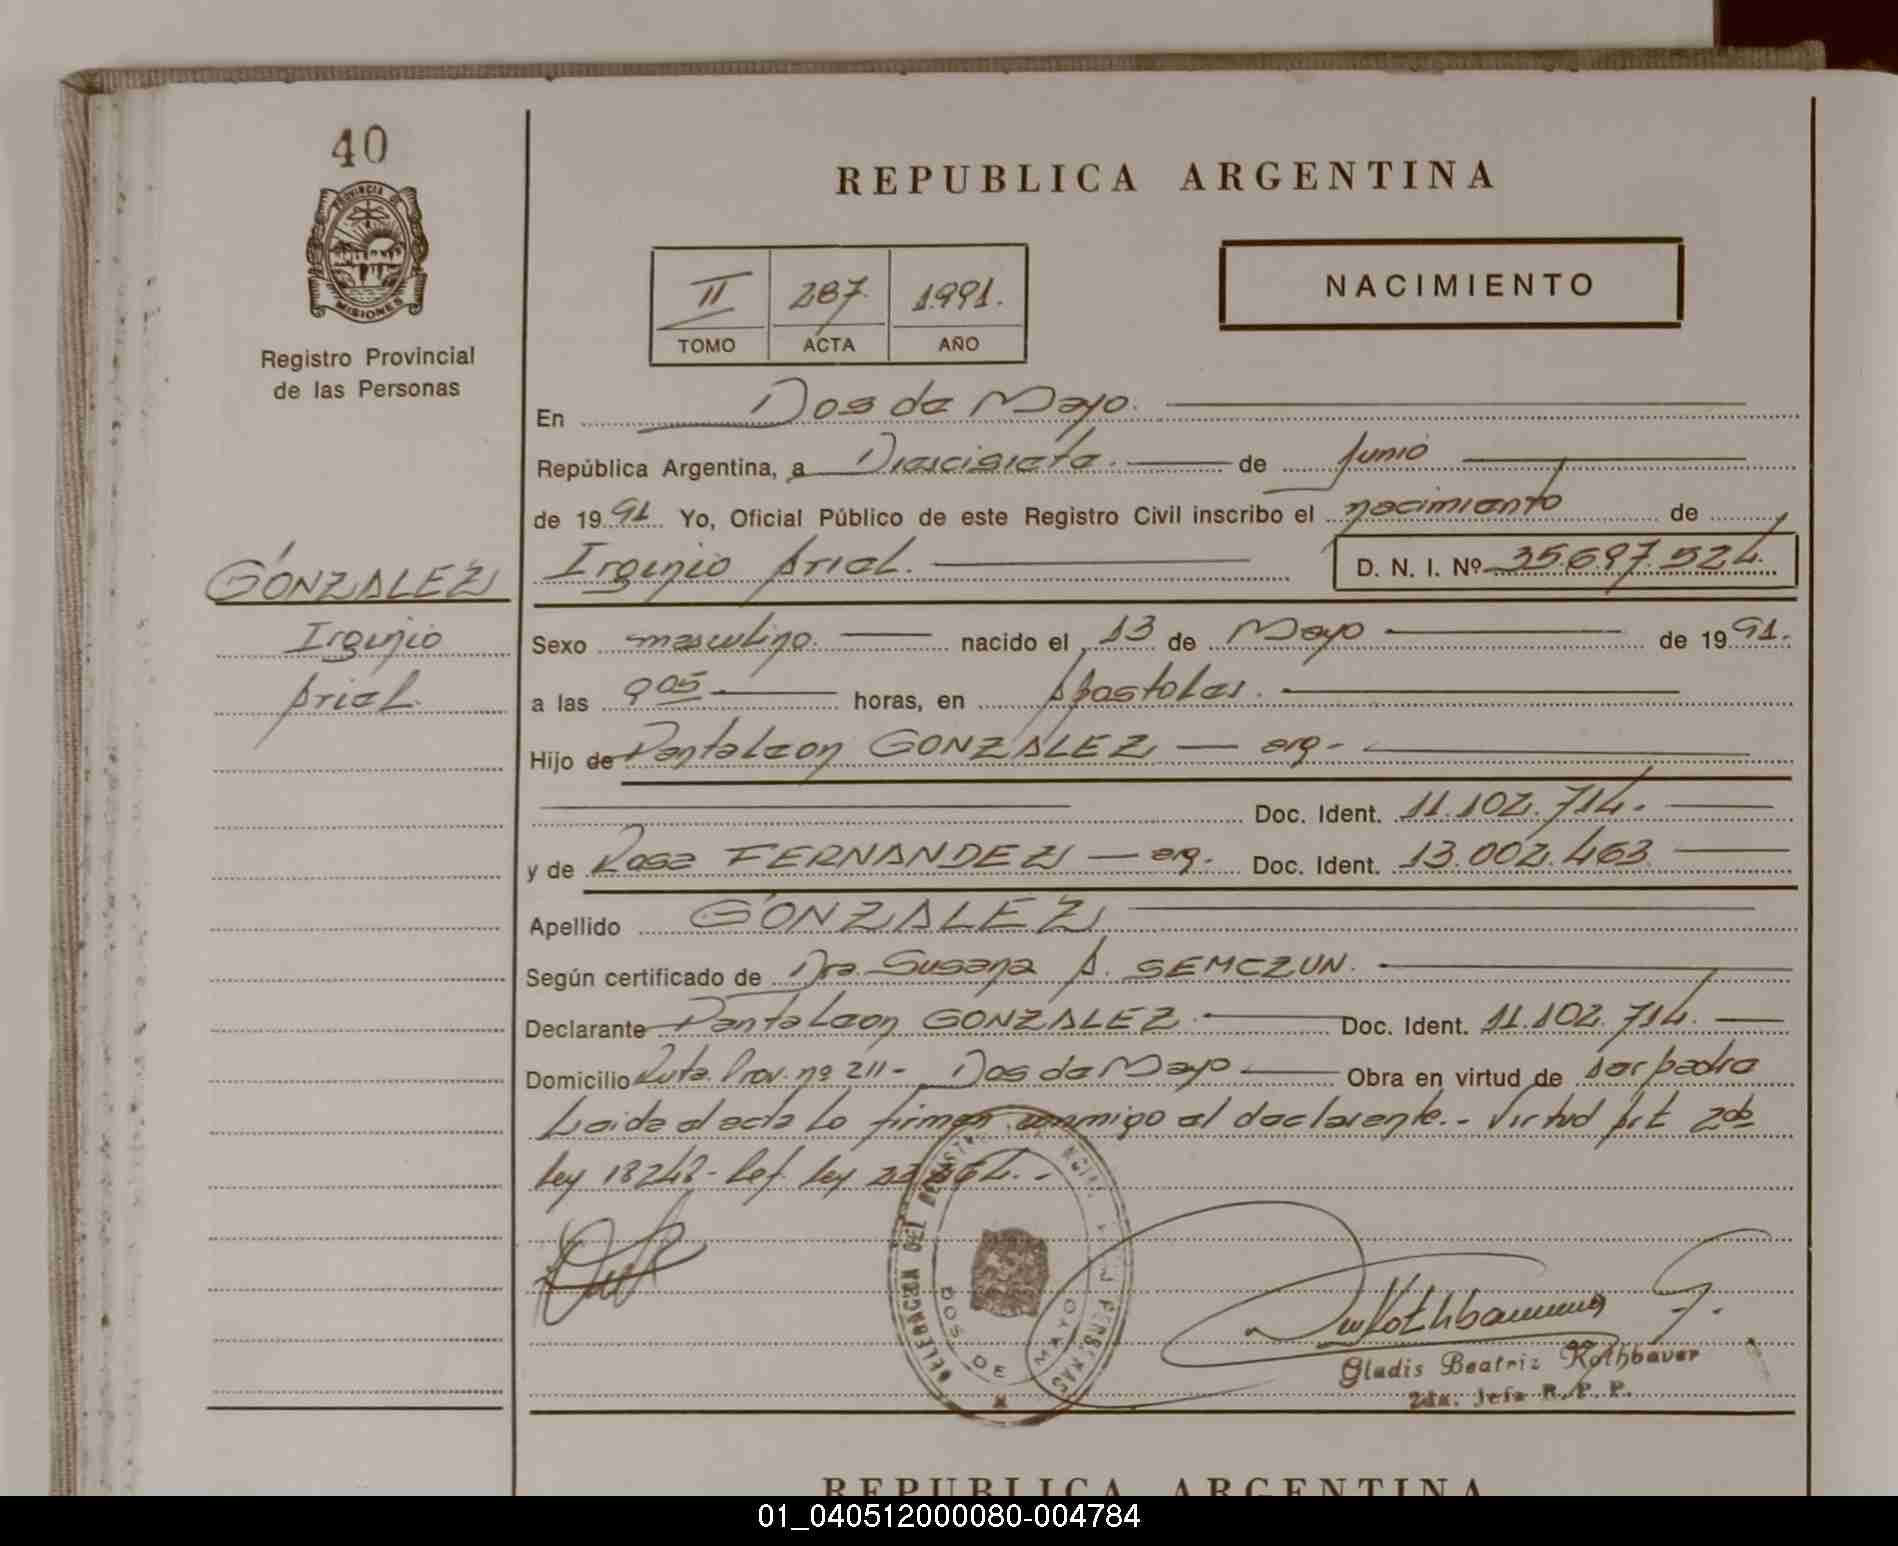 40
PROVINCIA DE
MISIONES
Registro Provincial
de las Personas
REPUBLICA ARGENTINA
II 287. 1991.
TOMO ACTA AÑO
NACIMIENTO
En Dos de Mayo.
República Argentina, a Diecisiete. de Junio
de 1991 Yo, Oficial Público de este Registro Civil inscribo el nacimiento de
GONZALEZ
Irginio
Ariel.
Irginio Ariel. D. N. I. Nº 35.697.524.
Sexo masculino. nacido el 13 de Mayo de 1991.
a las 9 05 horas, en Apostoles.
Hijo de Pantaleon GONZALEZ — arg.
Doc. Ident. 11.102.714.
y de Rosa FERNANDEZ — arg. Doc. Ident. 13.002.463
Apellido GONZALEZ
Según certificado de Dra. Susana A. SEMCZUN.
Declarante Pantaleon GONZALEZ. Doc. Ident. 11.102.714.
Domicilio Ruta Prov. nº 211 - Dos de Mayo Obra en virtud de ser padre
Leida el acta lo firman conmigo el declarante. - Virtud Art 2do
ley 18248 - Ref. ley
DELEGACION DEL REGISTRO PERSONAS
DOS DE MAYO
Gladis Beatriz Rothbauer
2da. Jefa R. P. P.
REPUBLICA ARGENTINA
01_040512000080-004784